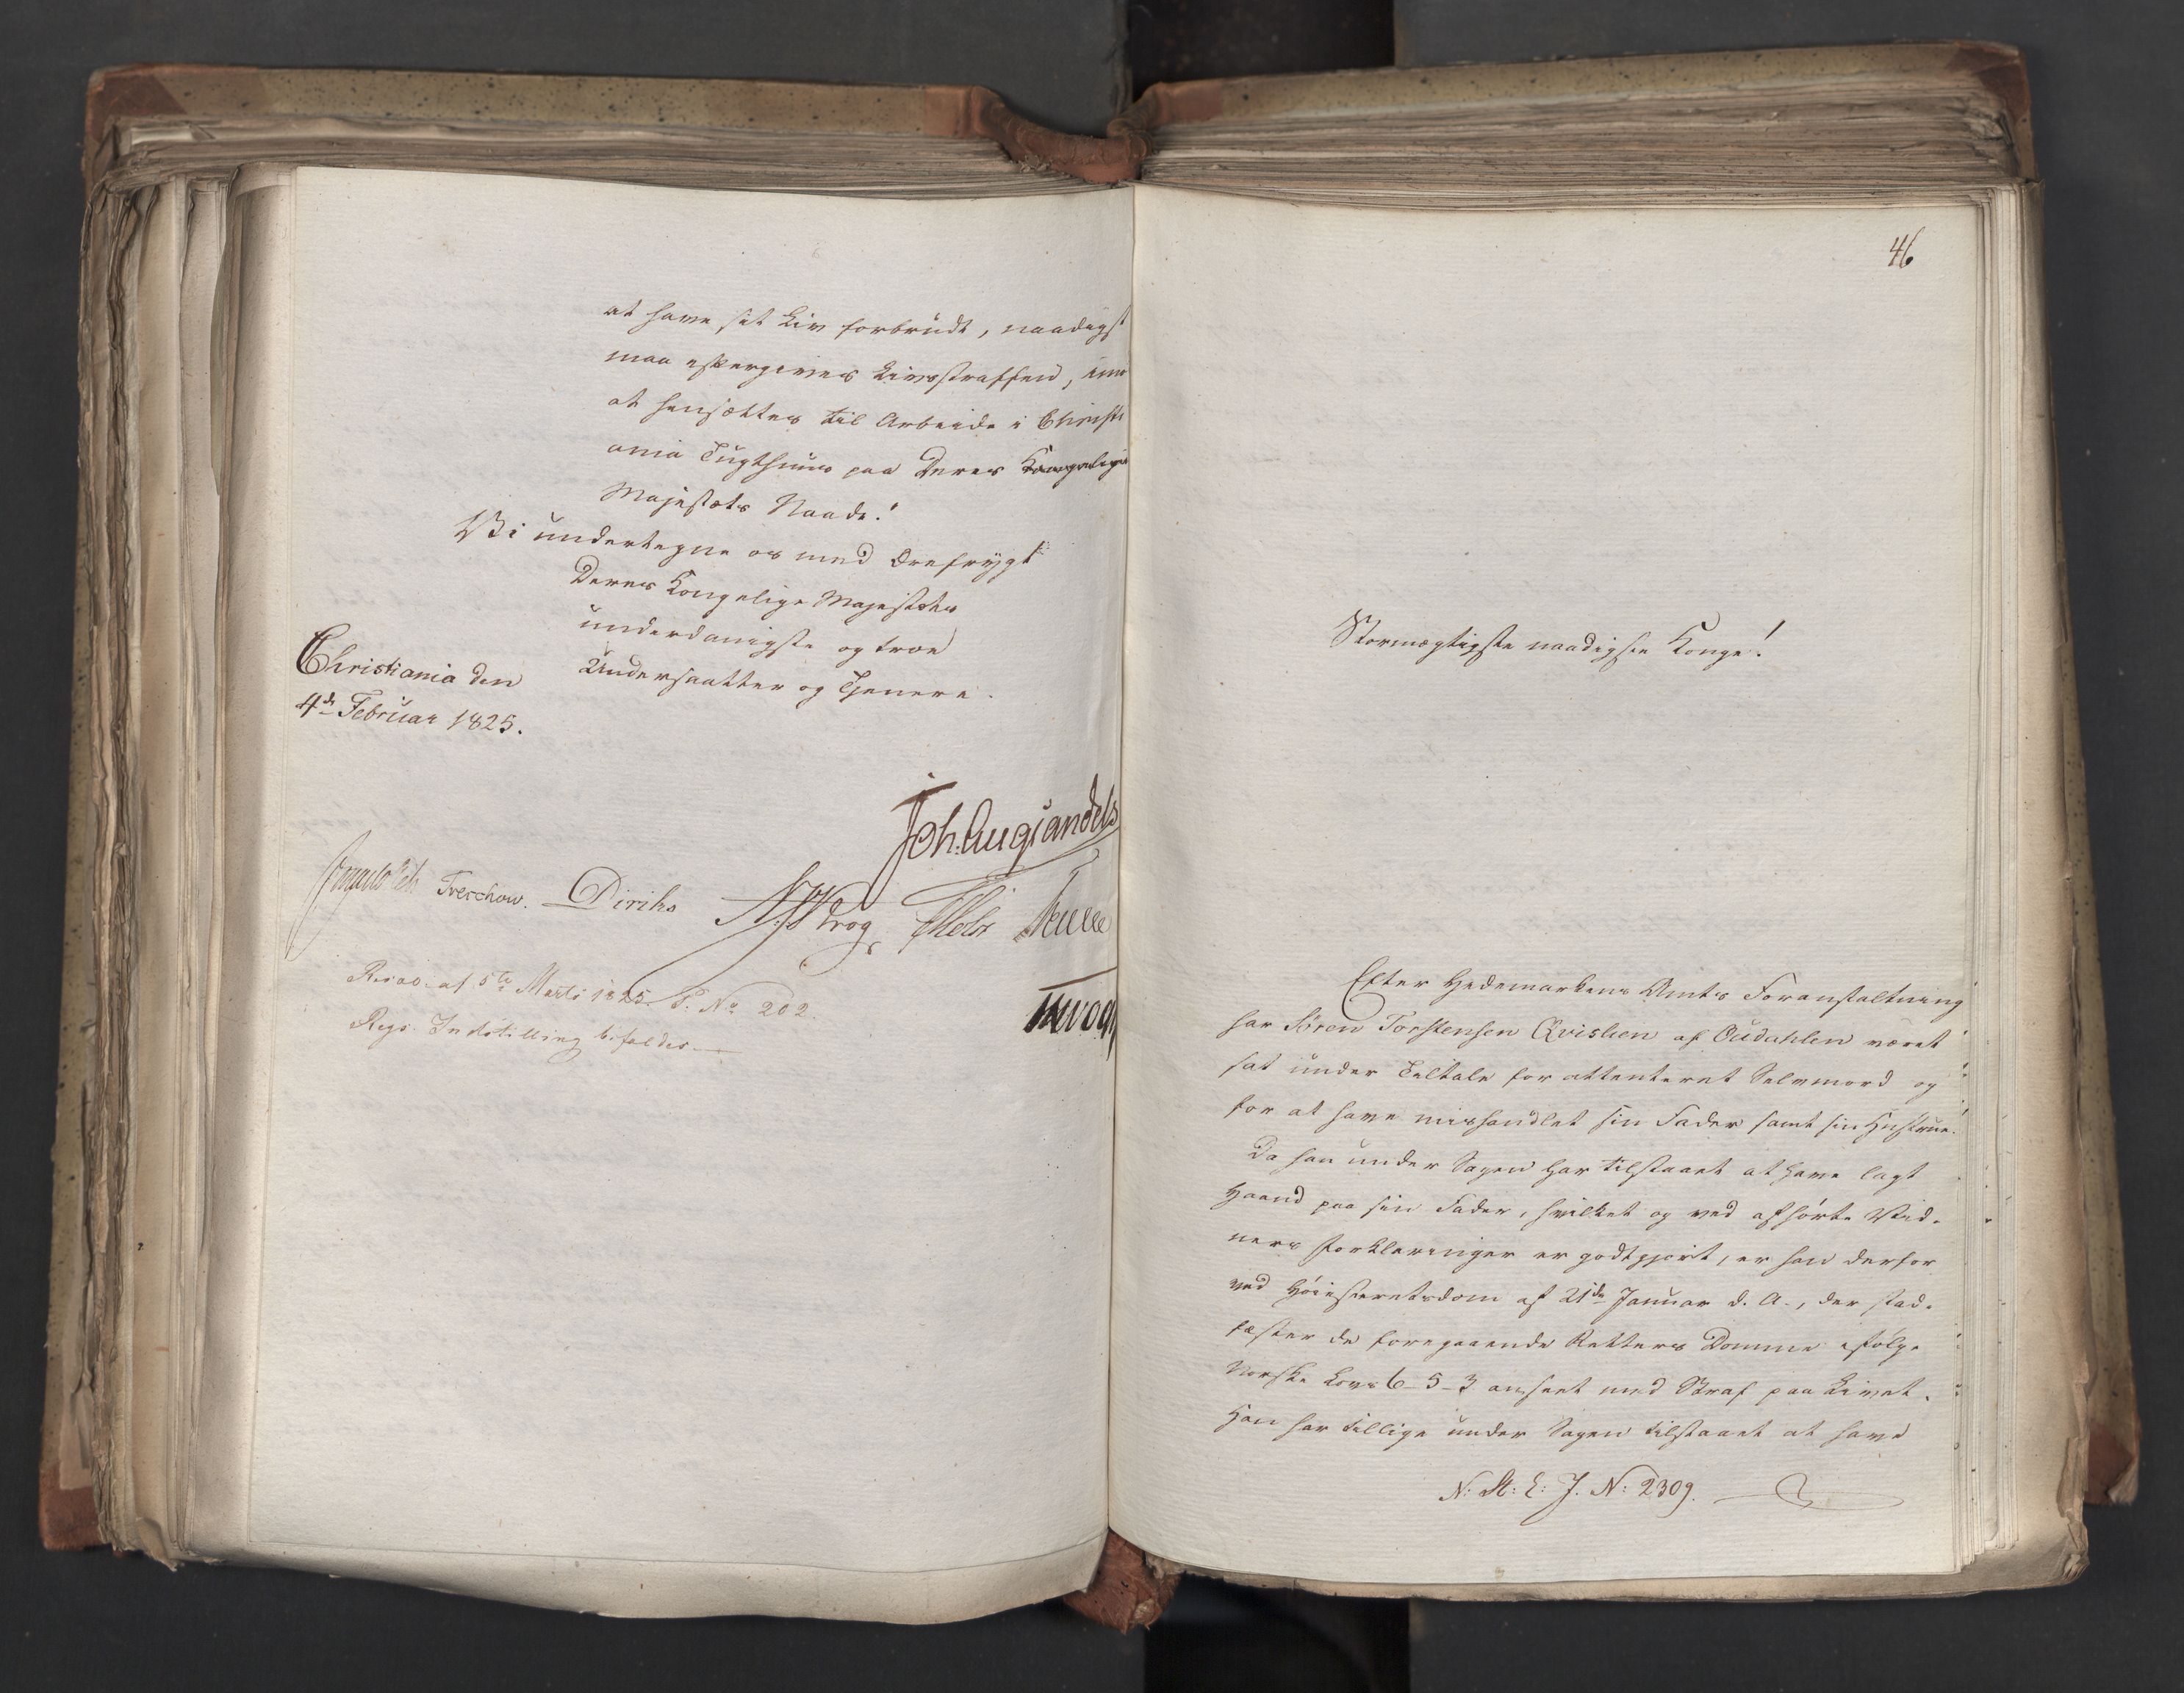 at have sit Liv forbrudt, naadigst
maa eftergives Livsstraffen, imod
at hensættes til Arbeide i Christi
ania Tugthuus paa Deres Kongelige
Majestæts Naade!
Vi undertegne os med Ærefrygt
Deres Kongelige Majestæts
underdanigste og troe
Undersaatter og Tjenere.
Christiania den
4de Februar 1825.
Joh: Aug Sandels
Treschow. Diriks Krog
Resol. af 5te Marts 1825. P. No 202.
Regs Indstilling bifaldes
46
Stormægtigste naadigste Konge!
Efter Hedemarkens Amts Foranstaltning
har Sören Torstensen Qvislien af Oudahlen været
sat under Tiltale for attenteret Selvmord og
for at have mishandlet sin Fader samt sin Hustrue.
Da han under Sagen har tilstaaet at have lagt
Haand paa sin Fader, hvilket og ved afhørte Vid-
ners Forklaringer er godtgjort, er han derfor
ved Høiesteretsdom af 21de Januar d. A., der stad-
fæster de foregaaende Retters Domme ifølge
Norske Lovs 6-5-3 anseet med Straf paa Livet.
Han har tillige under Sagen tilstaaet at have
N: St: E: J. N: 2309.